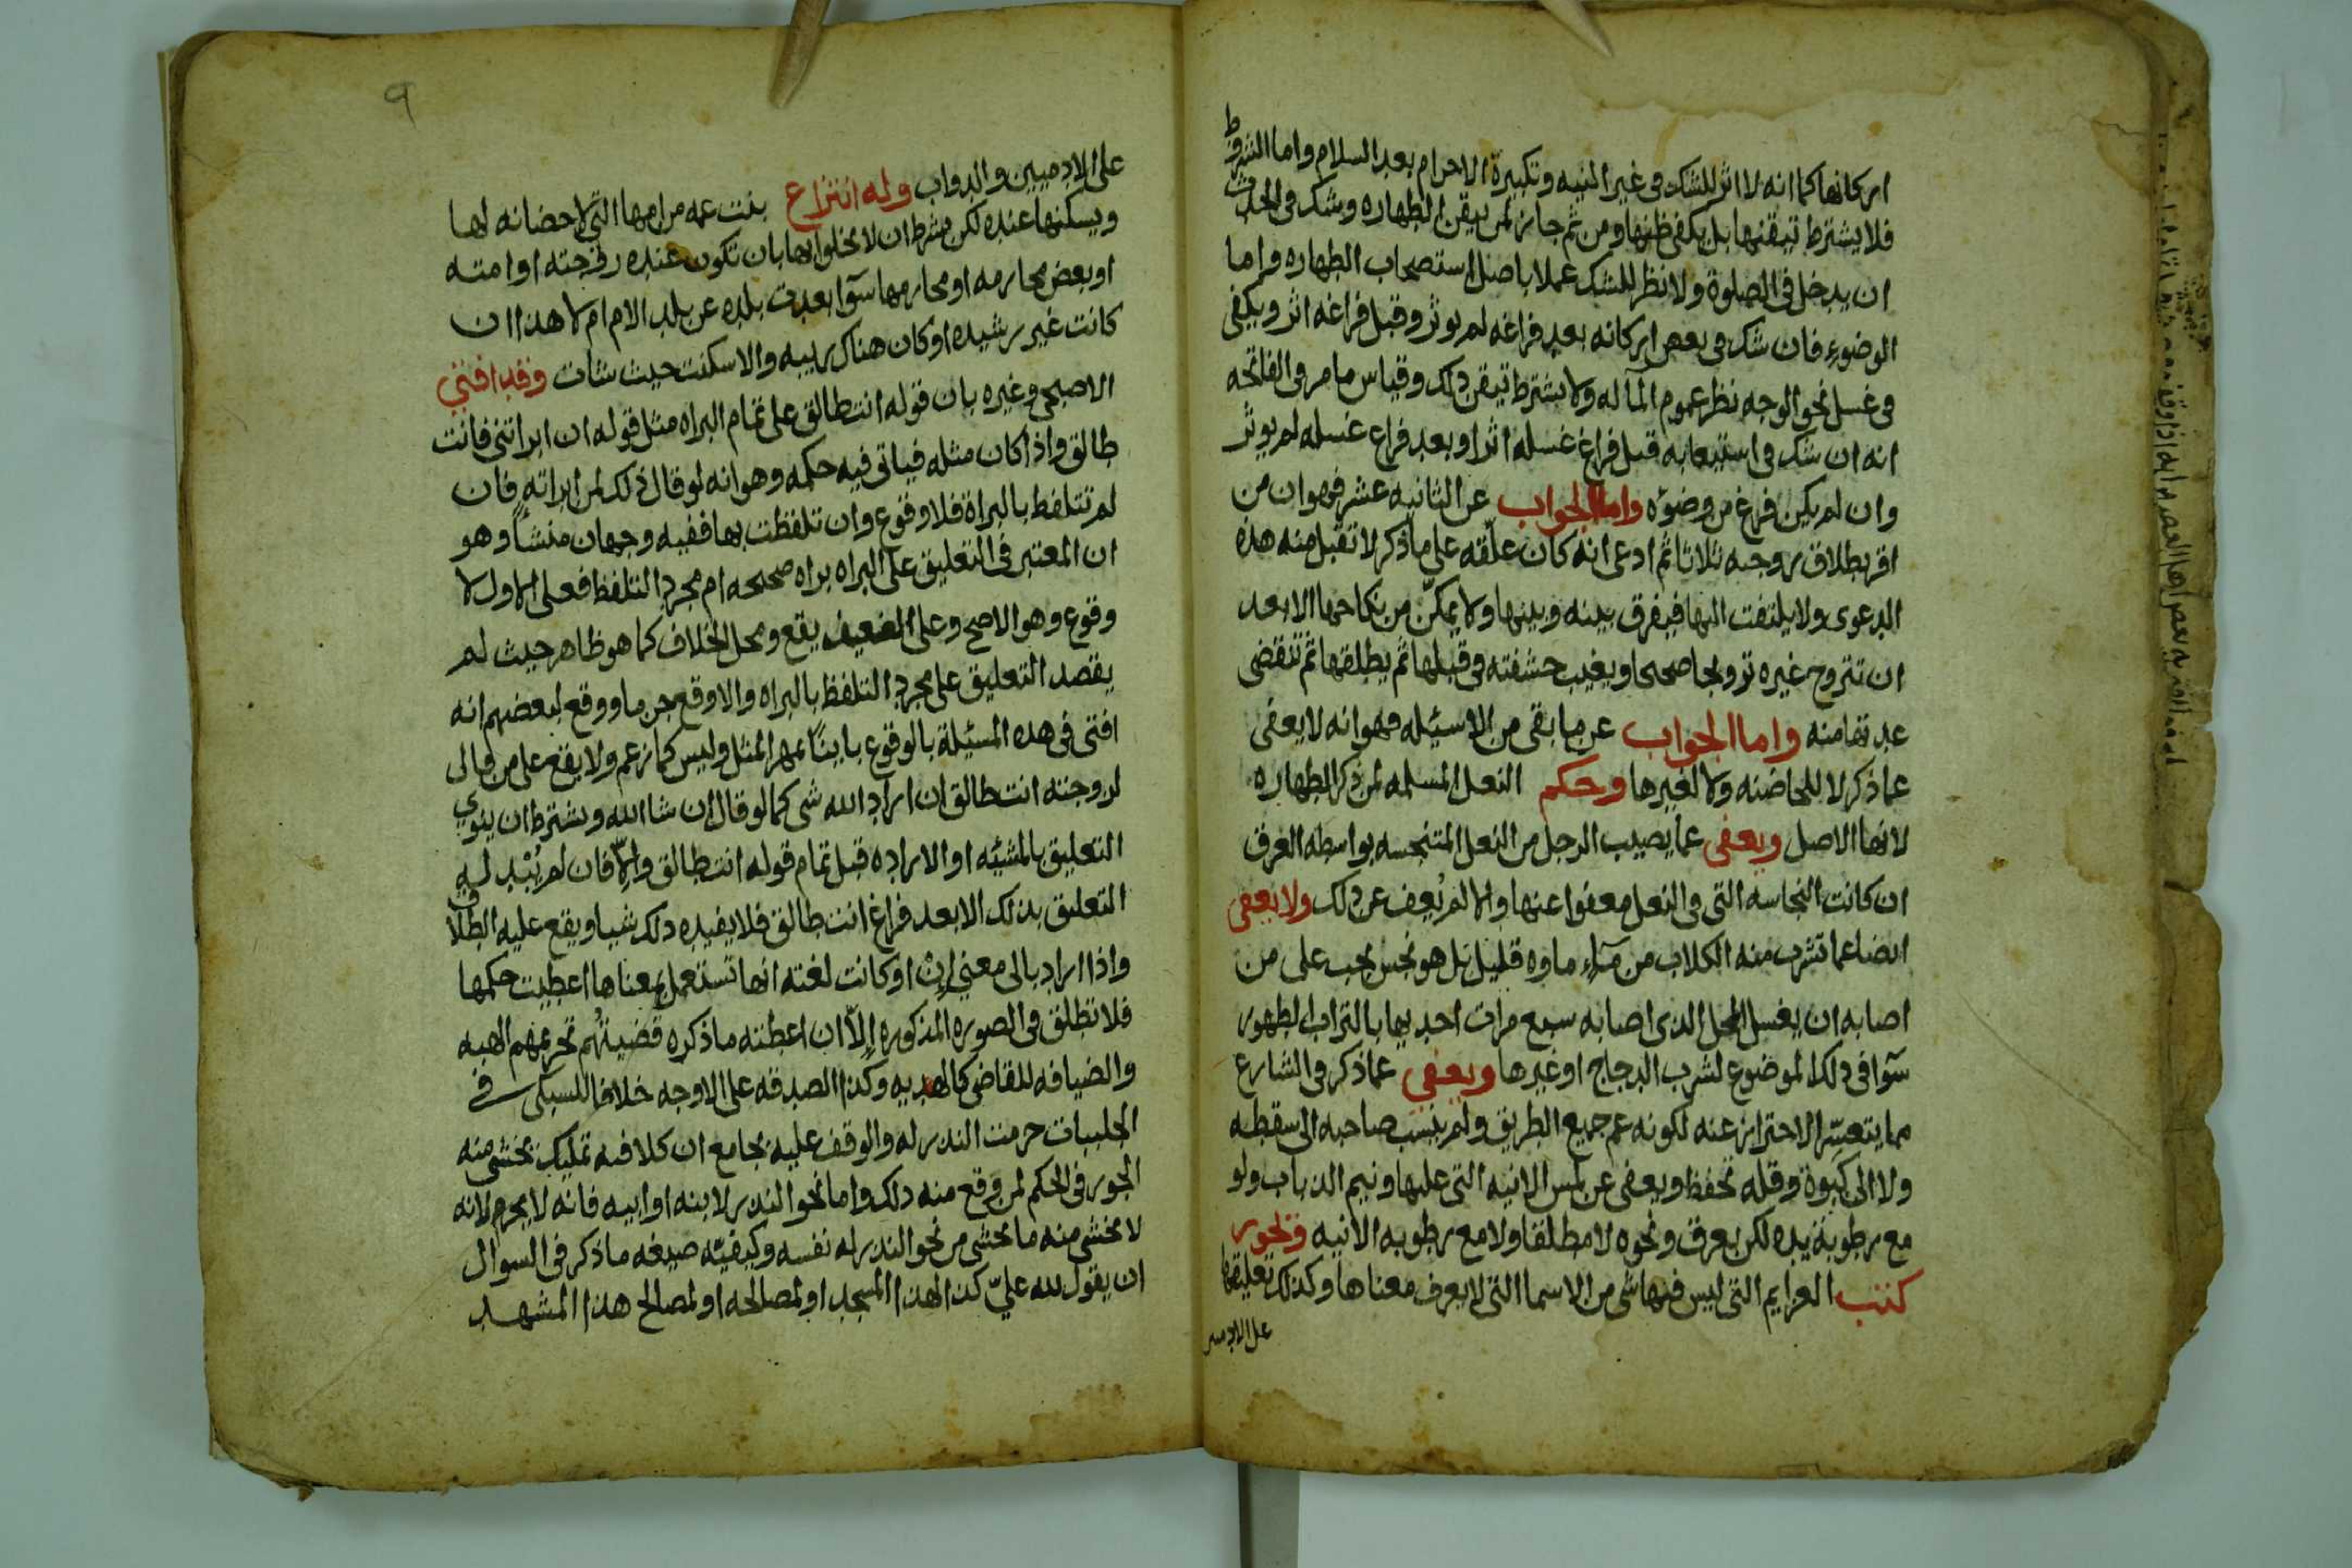 اركانها كما انه لا اثر للشك في غير النيه وتكبيرة الاحرام بعد السلام واما الشروط
فلا يشترط تيقنها بل يكفي ظنها ومن ثم جاز لمن تيقن الطهاره وشك في الحدث
ان يدخل في الصلوة ولا نظر للشك عملا باصل استصحاب الطهاره واما
الوضوء فان شك في بعض اركانه بعد فراغه لم يوثر وقبل فراغه اثر ويكفي
في غسل نحو الوجه نظر عموم المآ له ولا يشترط تيقن ذلك وقياس ما مر في الفاتحه
انه ان شك في استيعابه قبل فراغ غسله اثر او بعد فراغ غسله لم يوثر
وان لم يكن فرغ من وضوئه واما الجواب عن الثانيه عشر فهو ان من
اقر بطلاق زوجه ثلاثا ثم ادعى انه كان علّقه على ما ذكر لا تقبل منه هذه
الدعوى ولا يلتفت اليها فيفرق بينه وبينها ولا يمكّن من نكاحها الا بعد
ان تتزوج غيره تزويجا صحيحا ويغيب حشفته في قبلها ثم يطلقها ثم تنقضي
عدتها منه واما الجواب عن ما بقى من الاسئيله فهو انه لا يعفى
عما ذكر لا للحاضنه ولا لغيرها وحكم النعل المسلمه لمن ذكر الطهاره
لانها الاصل ويعفى عما يصيب الرجل من النعل المتنجسه بواسطه العرق
ان كانت النجاسه التي في النعل معفوا عنها والا لم يُعف عن ذلك ولا يعفى
ايضا عما تشرب منه الكلاب من مآء ماوه قليل بل هو نجس يجب على من
اصابه ان يغسل المحل الذي اصابه سبع مرات احديها بالتراب الطهور
سوآ في ذلك الموضوع لشرب الدجاج او غيرها ويعفى عما ذكر في الشارع
مما يتعسّر الاحتراز عنه لكونه عم جميع الطريق ولم ينسب صاحبه الى سقطه
ولا الى كبوة وقله تحفظ ويعفى عن لمس الانيه التي عليها ونيم الذباب ولو
مع رطوبة يده لكن بعرق ونحوه لا مطلقا ولا مع رطوبه الانيه وتجوز
كتب العزايم التي ليس فيها شي من الاسما التي لا يعرف معناها وكذلك تعليقها
على الادميين
٩
على الادميين والدواب وله انتزاع بنت عمه من امها التي لا حضانه لها
ويسكنها عنده لكن بشرط ان لا يخلوا بها بان تكون عنده زوجته او امته
او بعض محارمه او محارمها سوآ بعدت بلده عن بلد الام ام لا هذا ان
كانت غير رشيده او كان هناك ريبه والا سكنت حيث شات وقد افتى
الاصبحي وغيره بان قوله انت طالق على تمام البراه مثل قوله ان ابراتني فانت
طالق واذا كان مثله فياتي فيه حكمه وهو انه لو قال ذلك لمن ابراته فان
لم تتلفظ بالبراة فلا وقوع وان تلفظت بها ففيه وجهان منشأوهو
ان المعتبر في التعليق على البراه براه صحيحه ام مجرد التلفظ فعلى الاول لا
وقوع وهو الاصح وعلى الضعيف يقع ومحل الخلاف كما هو ظاهر حيث لم
يقصد التعليق على مجرد التلفظ بالبراه والا وقع جزما ووقع لبعضهم انه
افتى في هذه المسيئلة بالوقوع بائنا بمهر المثل وليس كما زعم ولا يقع على من قال
لزوجته انت طالق ان اراد الله شي كما لو قال ان شا الله ويشترط ان ينوي
التعليق بالمشيئه او الاراده قبل تمام قوله انت طالق والّا فان لم يُبْد له
التعليق بذلك الا بعد فراغ انت طالق فلا يفيده ذلك شيا ويقع عليه الطلاق
واذا اراد بالى معنى إنْ او كانت لغته انها تستعمل بمعناها اعطيت حكمها
فلا تطلق في الصوره المذكوره إلّا ان اعطته ما ذكره قضيتُهم تحريمهم الهبه
والضيافه للقاضي كالهديه وكذا الصدقه على الاوجه خلافا للسبكى في
الحلبيات حرمت النذر له والوقف عليه بجامع ان كلا فيه تمليك يخشى منه
الجور في الحكم لمن وقع منه ذلك واما نحو النذر لابنه او ابيه فانه لا يحرم لانه
لا يخشى منه ما يخشى من نحو النذر له نفسه وكيفيّه صيغه ما ذكر في السوال
ان يقول لله عليّ كذا لهذا المسجد او لمصالحه او لمصالح هذا المشهد